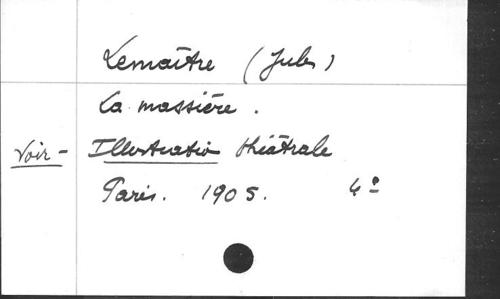 Lemaître (Jules)
La massière.
Voir - Illustration théâtrale
Paris. 1905. 4º